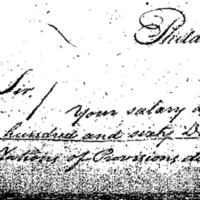 Phila
Sir,
Your salary
hundred and sixty D
Rations of Provisions